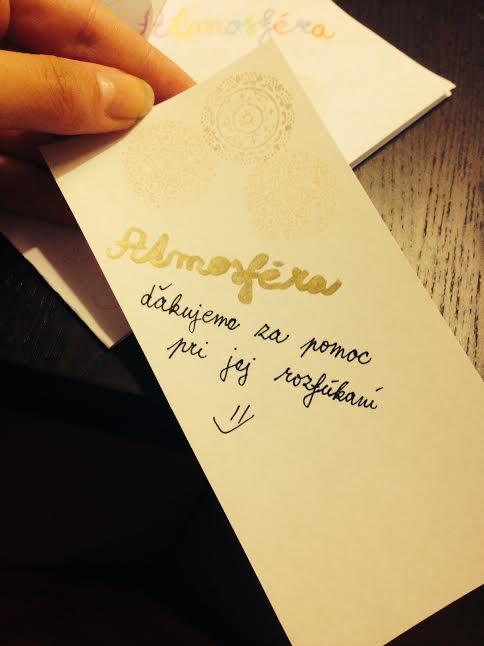 Atmosféra
Atmosféra
ďakujeme za pomoc
pri jej rozfúkaní